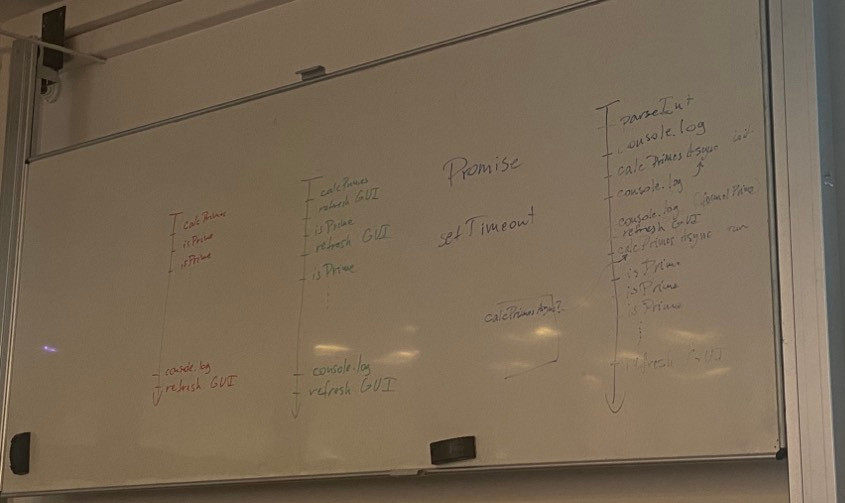 calcPrimes
isPrime
isPrime
console.log
refresh GUI
calcPrimes
refresh GUI
isPrime
refresh GUI
isPrime
console.log
refresh GUI
Promise
setTimeout
calcPrimesAsync
parseInt
console.log
calcPrimes Async
console.log
console.log
refresh GUI
calcPrimes Async run
isPrime
isPrime
isPrime
refresh GUI